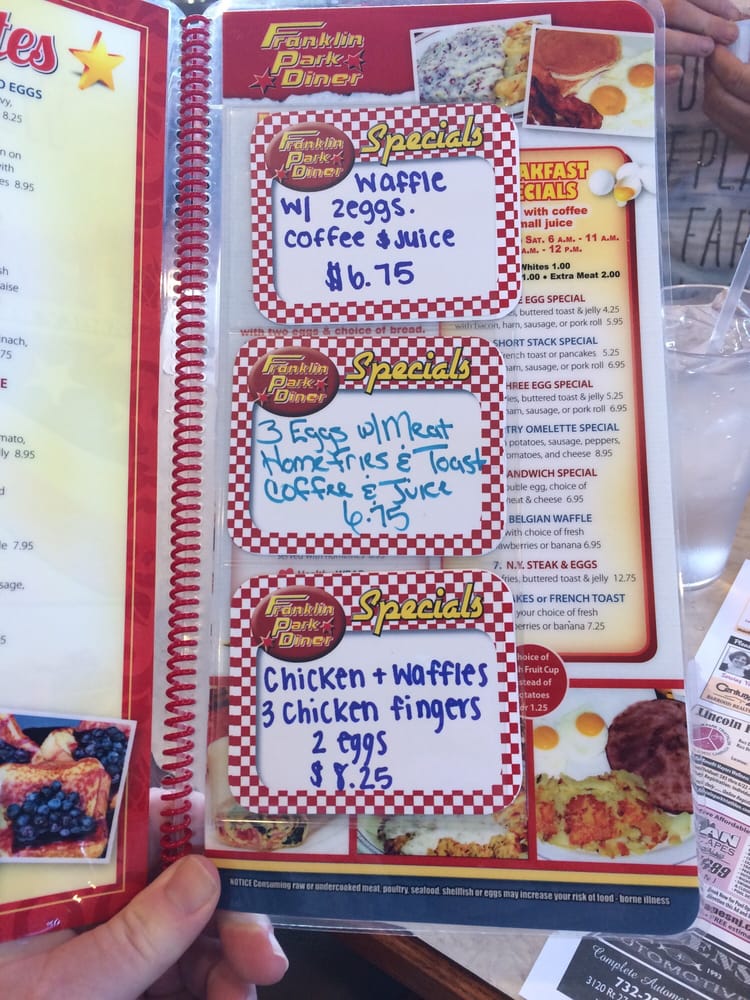 tes
O EGGS
8.25
n on
with
es 8.95
sh
aise
nach,
75
E
mato,
lly 8.95
d
le 7.95
sage,
5
Franklin
Park
Diner
Franklin
Park
Diner
Specials
Waffle
w/ 2eggs.
Coffee & Juice
$6.75
with two eggs & choice of bread.
Franklin
Park
Diner
Specials
3 Eggs w/Meat
Homefries & Toast
Coffee & Juice
6.75
Franklin
Park
Diner
Specials
Chicken + Waffles
3 Chicken fingers
2 eggs
$8.25
AKFAST
CIALS
with coffee
mall juice
SAT. 6 A.M. - 11 A.M.
A.M. - 12 P.M.
Whites 1.00
1.00 • Extra Meat 2.00
E EGG SPECIAL
, buttered toast & jelly 4.25
with bacon, ham, sausage, or pork roll 5.95
SHORT STACK SPECIAL
rench toast or pancakes 5.25
ham, sausage, or pork roll 6.95
HREE EGG SPECIAL
ies, buttered toast & jelly 5.25
ham, sausage, or pork roll 6.95
TRY OMELETTE SPECIAL
potatoes, sausage, peppers,
omatoes, and cheese 8.95
ANDWICH SPECIAL
ouble egg, choice of
meat & cheese 6.95
BELGIAN WAFFLE
with choice of fresh
awberries or banana 6.95
7. N.Y. STEAK & EGGS
fries, buttered toast & jelly 12.75
AKES or FRENCH TOAST
your choice of fresh
erries or banana 7.25
hoice of
h Fruit Cup
stead of
otatoes
or 1.25
NOTICE Consuming raw or undercooked meat, poultry, seafood, shellfish or eggs may increase your risk of food - borne illness
PLA
FAR
Century
Lincoln
AN
APES
FREE
AUTOMOTIVE
1993
Complete Autom
732-
3120 Rt